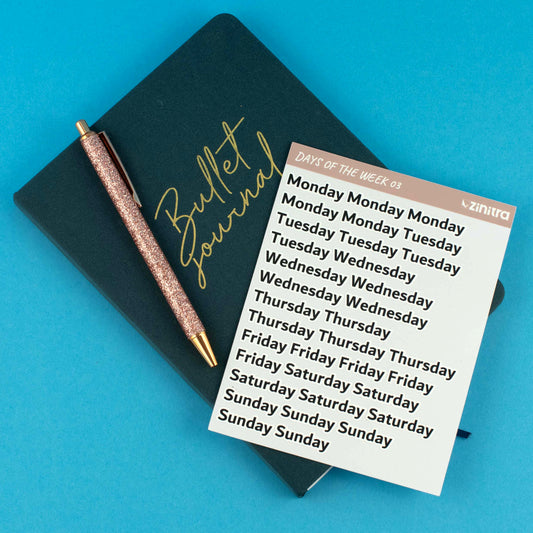 Bullet
Journal
DAYS OF THE WEEK 03
zinitra
Monday Monday Monday
Monday Monday Tuesday
Tuesday Tuesday Tuesday
Tuesday Wednesday
Wednesday Wednesday
Wednesday Wednesday
Thursday Thursday
Thursday Thursday Thursday
Friday Friday Friday Friday
Friday Saturday Saturday
Saturday Saturday Saturday
Sunday Sunday Sunday
Sunday Sunday